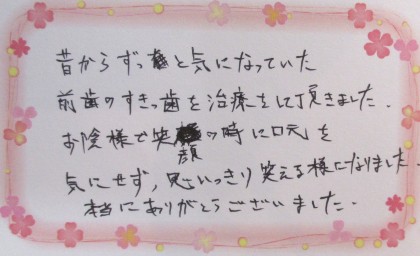 昔からずっと気になっていた
前歯のすきっ歯を治療をして頂きました.
お陰様で笑顔の時に口元を
気にせず,思いっきり笑える様になりました.
本当にありがとうございました.